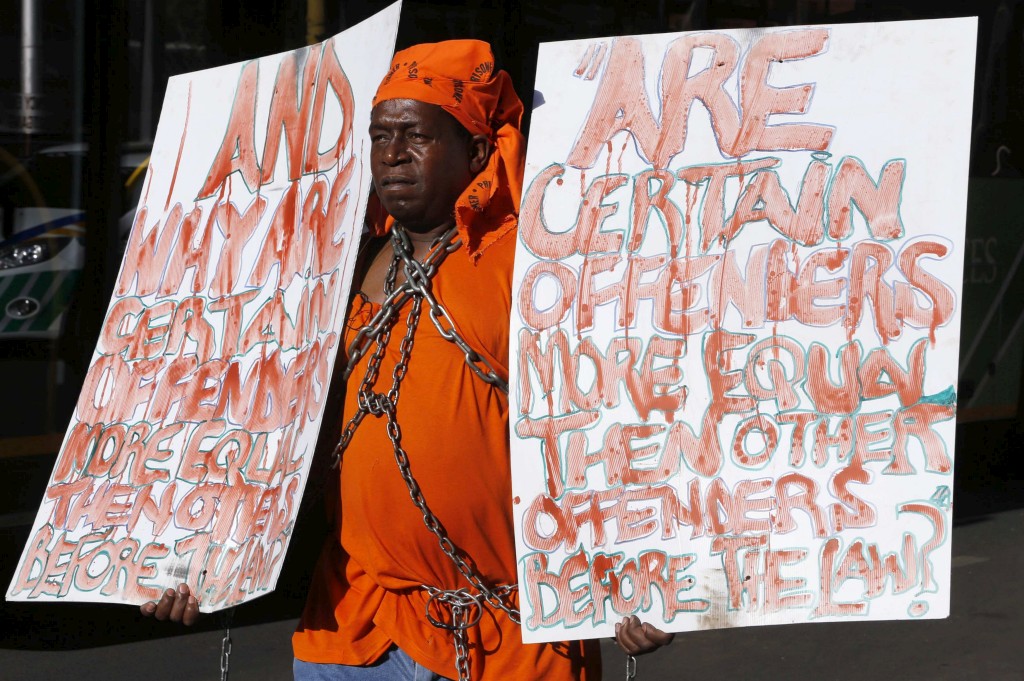 AND
WHY ARE
CERTAIN
OFFENDERS
MORE EQUAL
THEN OTHERS
BEFORE THE LAW
"ARE
CERTAIN
OFFENDERS
MORE EQUAL
THEN OTHER
OFFENDERS
BEFORE THE LAW?"